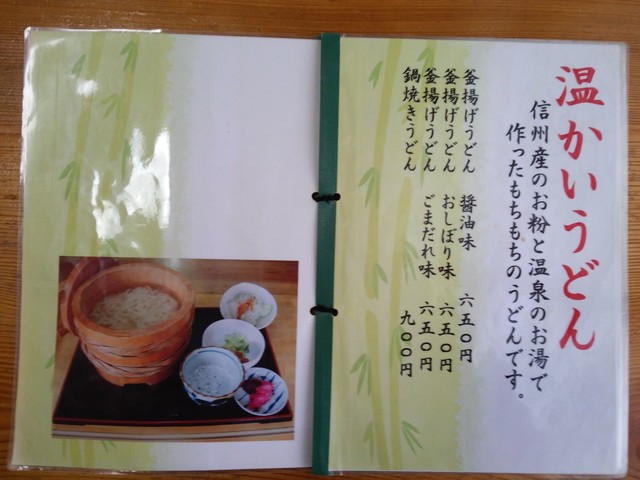 温かいうどん
信州産のお粉と温泉のお湯で
作ったもちもちのうどんです。
釜揚げうどん　醤油味　六五〇円
釜揚げうどん　おしぼり味　六五〇円
釜揚げうどん　ごまだれ味　六五〇円
鍋焼きうどん　九〇〇円